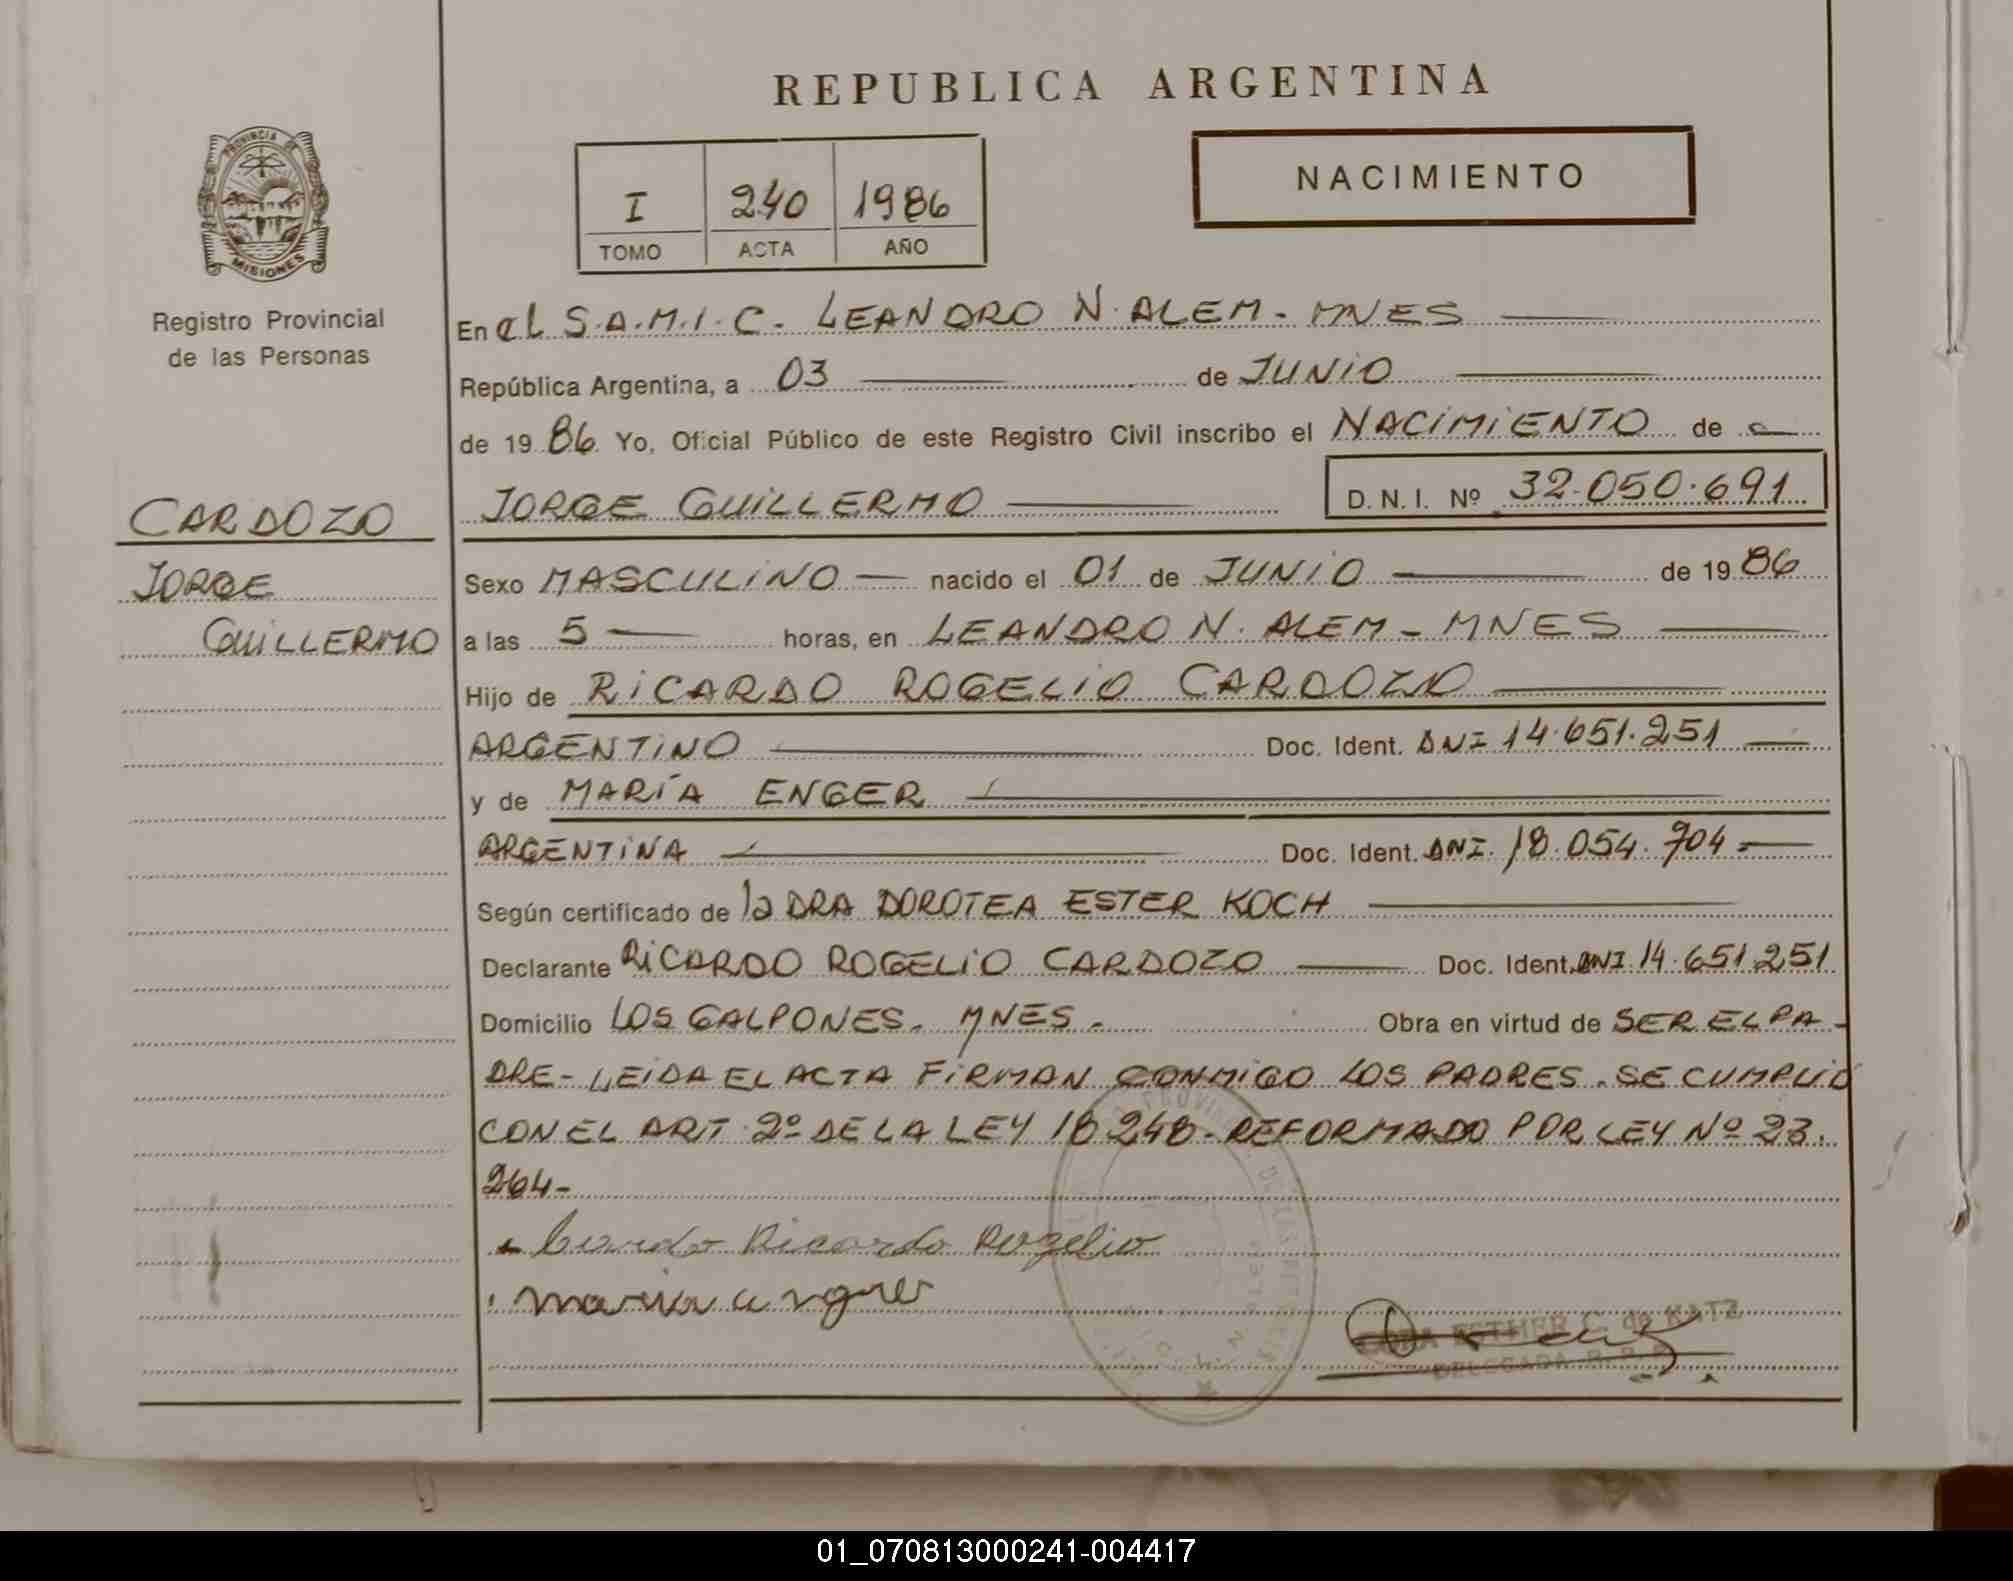 REPUBLICA ARGENTINA
PROVINCIA DE
MISIONES
Registro Provincial
de las Personas
I 240 1986
TOMO ACTA AÑO
NACIMIENTO
En el S.A.M.I.C. LEANDRO N. ALEM - MNES
República Argentina, a 03 de JUNIO
de 1986. Yo, Oficial Público de este Registro Civil inscribo el NACIMIENTO de
JORGE GUILLERMO D.N.I. Nº 32.050.691
CARDOZO
JORGE
GUILLERMO
Sexo MASCULINO — nacido el 01 de JUNIO de 1986
a las 5 — horas, en LEANDRO N. ALEM - MNES
Hijo de RICARDO ROGELIO CARDOZO
ARGENTINO Doc. Ident. DNI 14.651.251
y de MARÍA ENGER
ARGENTINA Doc. Ident. DNI. 18.054.704
Según certificado de la DRA DOROTEA ESTER KOCH
Declarante RICARDO ROGELIO CARDOZO Doc. Ident. DNI 14.651.251
Domicilio LOS GALPONES. MNES. Obra en virtud de SER EL PA-
DRE - LEIDA EL ACTA FIRMAN CONMIGO LOS PADRES. SE CUMPLIO
CON EL ART. 2º DE LA LEY 18248. REFORMADO POR LEY Nº 23.
264-
Ricardo Rogelio
ESTHER C. de KATZ
DELEGADA R. P. P.
01_070813000241-004417